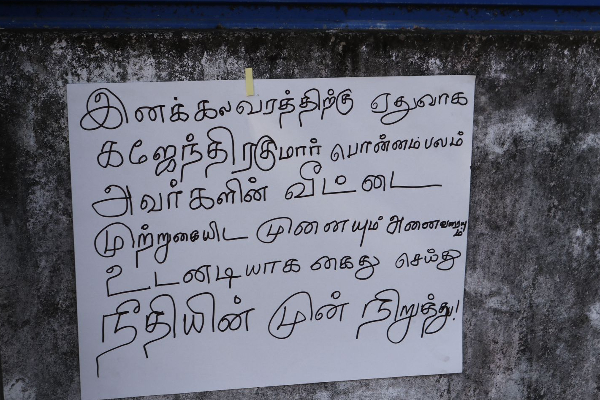 இனக்கலவரத்திற்கு ஏதுவாக
கஜேந்திரகுமார் பொன்னம்பலம்
அவர்களின் வீட்டை
முற்றுகையிட முனையும் அனைவரையும்
உடனடியாக கைது செய்து
நீதியின் முன் நிறுத்து!